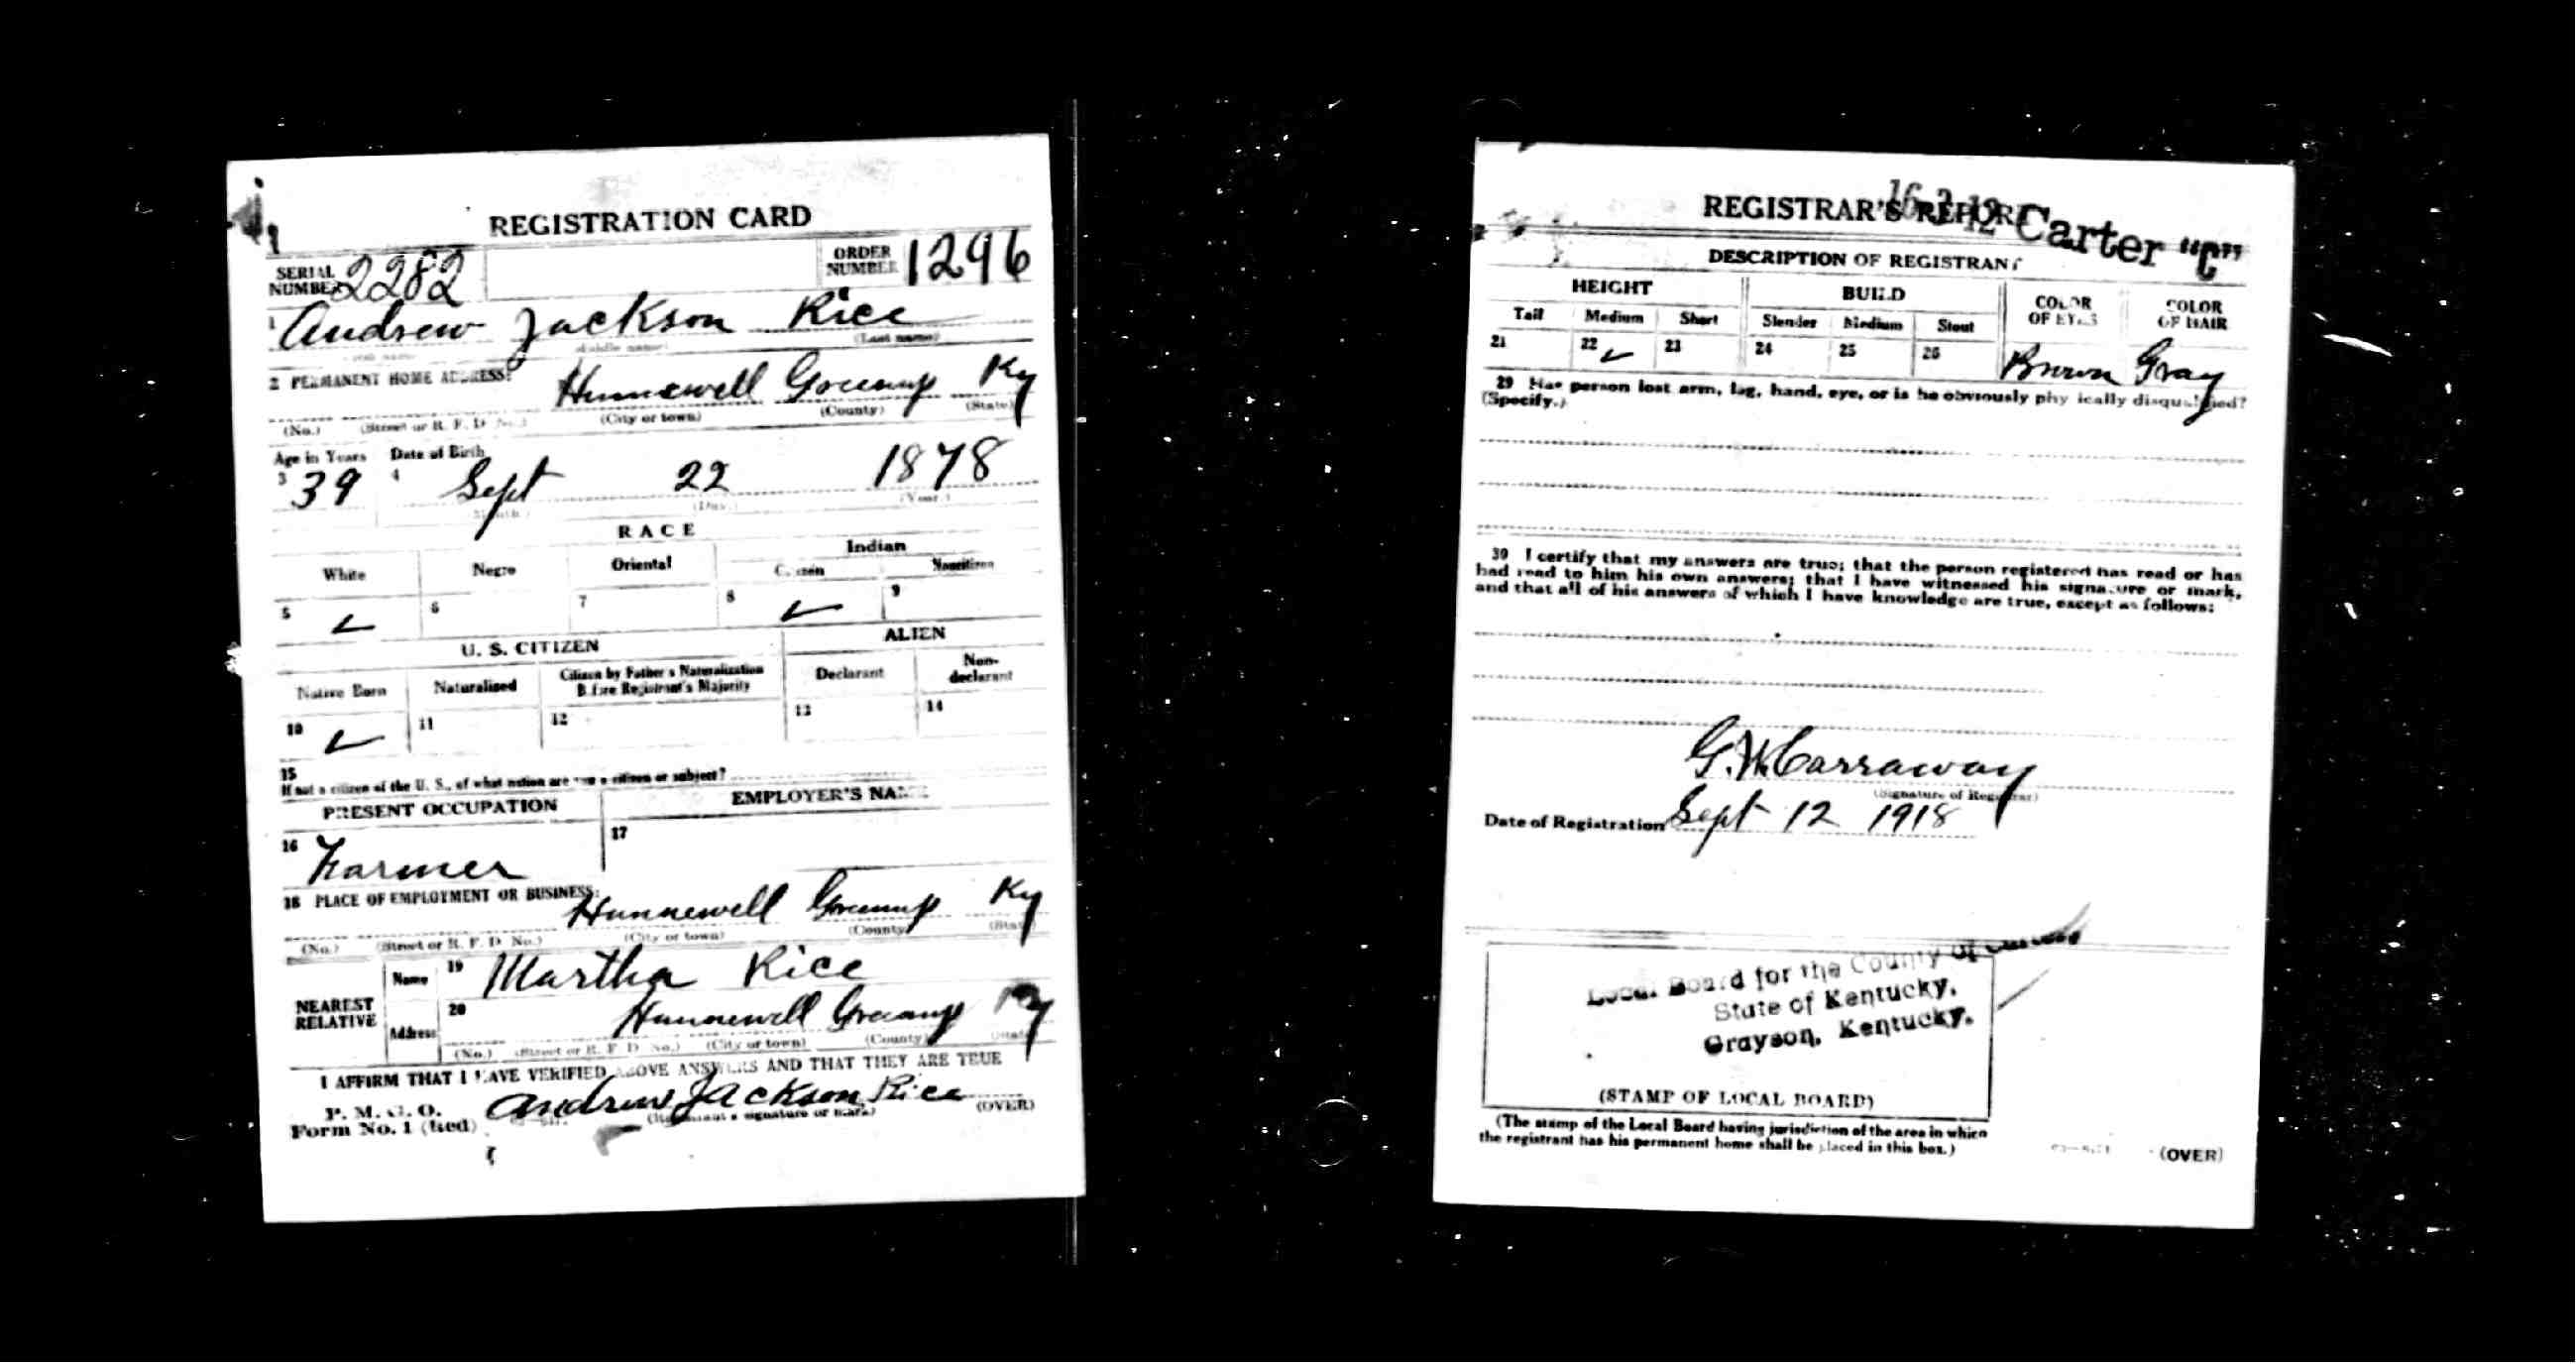 REGISTRATION CARD
SERIAL NUMBER 2282 ORDER NUMBER 1296
1 Andrew Jackson Rice
(Last name)
2 PERMANENT HOME ADDRESS: Hunnewell Greenup Ky
(No.) (Street or R. F. D. No.) (City or town) (County) (State)
Age in Years Date of Birth
3 39 4 Sept 22 1878
(Month) (Day.) (Year.)
RACE
White Negro Oriental Indian
Citizen Noncitizen
5 ✓ 6 7 8 ✓ 9
U. S. CITIZEN ALIEN
Native Born Naturalized Citizen by Father's Naturalization Before Registrant's Majority Declarant Non-declarant
10 ✓ 11 12 13 14
15
If not a citizen of the U. S., of what nation are you a citizen or subject?
PRESENT OCCUPATION EMPLOYER'S NAME
16 Farmer 17
18 PLACE OF EMPLOYMENT OR BUSINESS: Hunnewell Greenup Ky
(No.) (Street or R. F. D. No.) (City or town) (County) (State)
NEAREST RELATIVE Name 19 Martha Rice
Address 20 Hunnewell Greenup Ky
(No.) (Street or R. F. D. No.) (City or town) (County) (State)
I AFFIRM THAT I HAVE VERIFIED ABOVE ANSWERS AND THAT THEY ARE TRUE
P. M. G. O.
Form No. 1 (Red) Andrew Jackson Rice (OVER)
(Registrant's signature or mark)
REGISTRAR'S REPORT
16-3-12 Carter "C"
DESCRIPTION OF REGISTRANT
HEIGHT BUILD COLOR OF EYES COLOR OF HAIR
Tall Medium Short Slender Medium Stout
21 22 ✓ 23 24 25 26 Brown Gray
29 Has person lost arm, leg, hand, eye, or is he obviously physically disqualified?
(Specify.)
30 I certify that my answers are true; that the person registered has read or has
had read to him his own answers; that I have witnessed his signature or mark,
and that all of his answers of which I have knowledge are true, except as follows:
G. W. Carraway
(Signature of Registrar)
Date of Registration Sept 12 1918
Local Board for the County of Carter
State of Kentucky,
Grayson, Kentucky.
(STAMP OF LOCAL BOARD)
(The stamp of the Local Board having jurisdiction of the area in which
the registrant has his permanent home shall be placed in this box.)
(OVER)